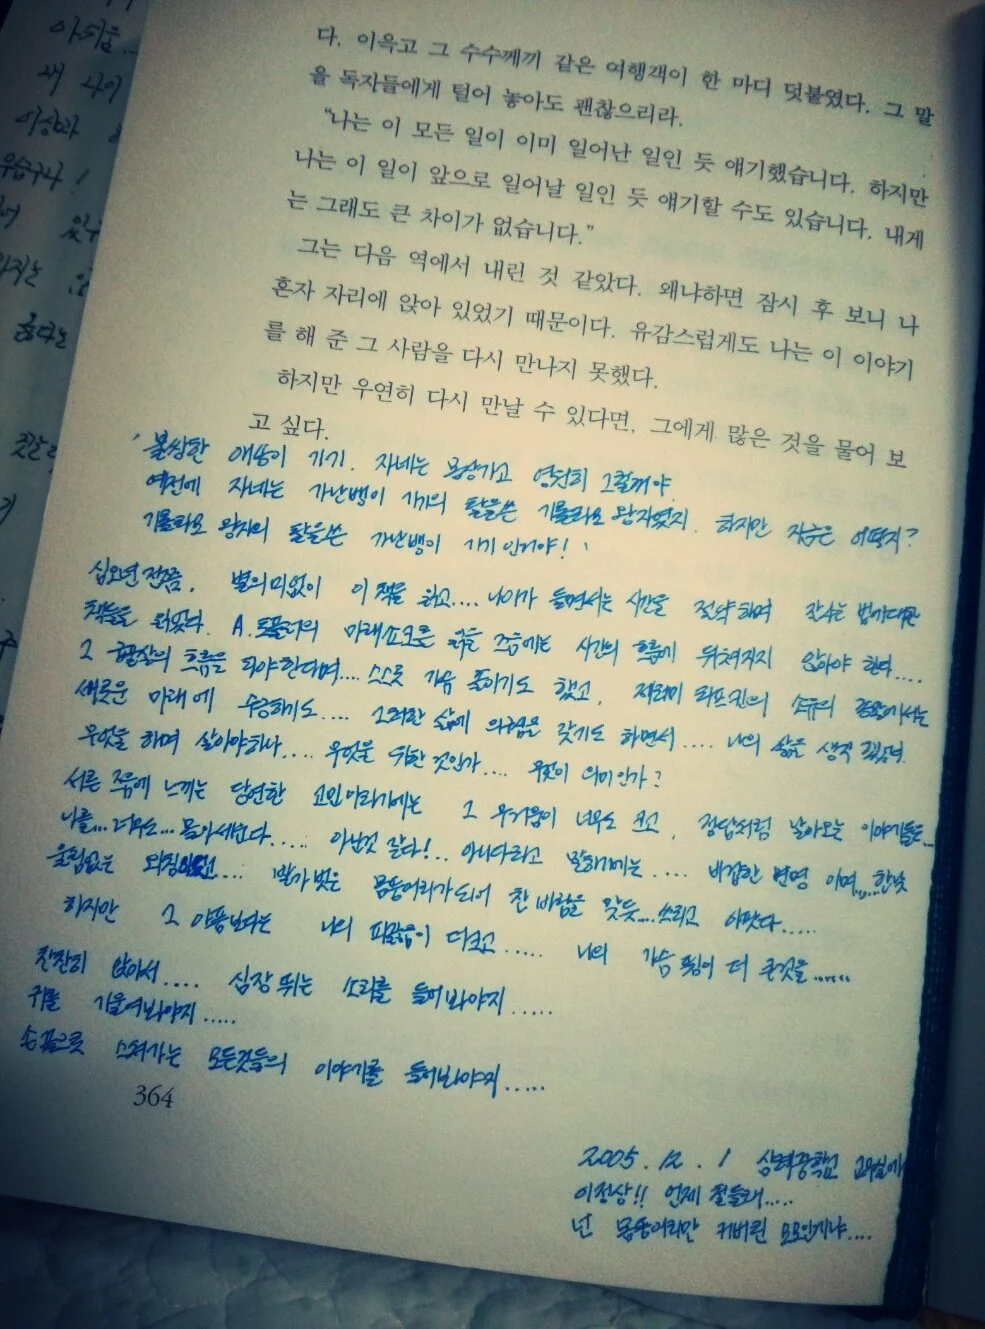 아쉬움...
새 나이
이상과
우습구나!
다. 이윽고 그 수수께끼 같은 여행객이 한 마디 덧붙였다. 그 말
을 독자들에게 털어 놓아도 괜찮으리라.
“나는 이 모든 일이 이미 일어난 일인 듯 얘기했습니다. 하지만
나는 이 일이 앞으로 일어날 일인 듯 얘기할 수도 있습니다. 내게
는 그래도 큰 차이가 없습니다.”
그는 다음 역에서 내린 것 같았다. 왜냐하면 잠시 후 보니 나
혼자 자리에 앉아 있었기 때문이다. 유감스럽게도 나는 이 이야기
를 해 준 그 사람을 다시 만나지 못했다.
하지만 우연히 다시 만날 수 있다면, 그에게 많은 것을 물어 보
고 싶다.
' 불쌍한 기기. 자네는 몽상가고 영원히 그럴꺼야.
예전에 자네는 가난뱅이 기기의 탈을쓴 기롤라모 왕자였지. 하지만 지금은 어떻지?
기롤라모 왕자의 탈을쓴 가난뱅이 기기 인거야! '
십오년 전쯤, 별의미없이 이 책을 읽고.... 나이가 들면서는 시간을 절약하며 잘사는 법에대한
책들을 읽었다. A.토플러의 미래쇼크를 읽을 즈음에는 시간의 흐름에 뒤쳐지지 않아야 한다....
그 흐름을 타야한다며.... 스스로 가슴 졸이기도 했고, 제러미 리프킨의 소유의 종말에서는
새로운 미래에 수긍하기도.... 그러한 삶에 의념을 갖기도 하면서.... 나의 삶을 생각
무엇을 하며 살아야하나.... 무엇을 위한 것인가.... 무엇이 의미인가?
서른 즈음에 느끼는 당연한 고민이라기에는 그 무거움이 너무도 크고, 정답처럼 날아오는 이야기들은...
나를... 너무도... 몰아세운다..... 아닌것 같다!.. 아니다라고 말하기에는.... 비겁한 변명 이며....한낱
울림없는 .... 발가 벗은 몸뚱어리가되어 찬 바람을 맞듯... 쓰리고 아팠다.....
하지만 그 아픔보다는 나의 이 더크고..... 나의 가슴 이 더 큰것을......
잔잔히 앉아서.... 심장 뛰는 소리를 들어봐야지.....
귀를 기울여봐야지.....
손끝으로 스쳐가는 모든것들의 이야기를 들어봐야지.....
364
2005. 12. 1 교무실에
이정상!! 언제 철들래.....
넌 몸뚱어리만 커버린 모모인게냐....